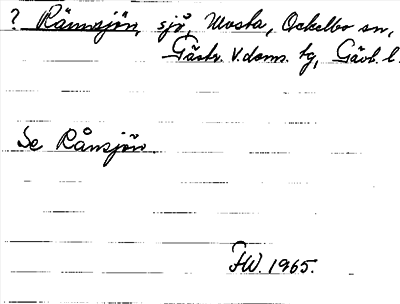 ? Rännsjön, sjö, Mosta, Ockelbo sn,
Gästr. V. doms. tg, Gävl. l.
Se Rånsjön.
FW. 1965.